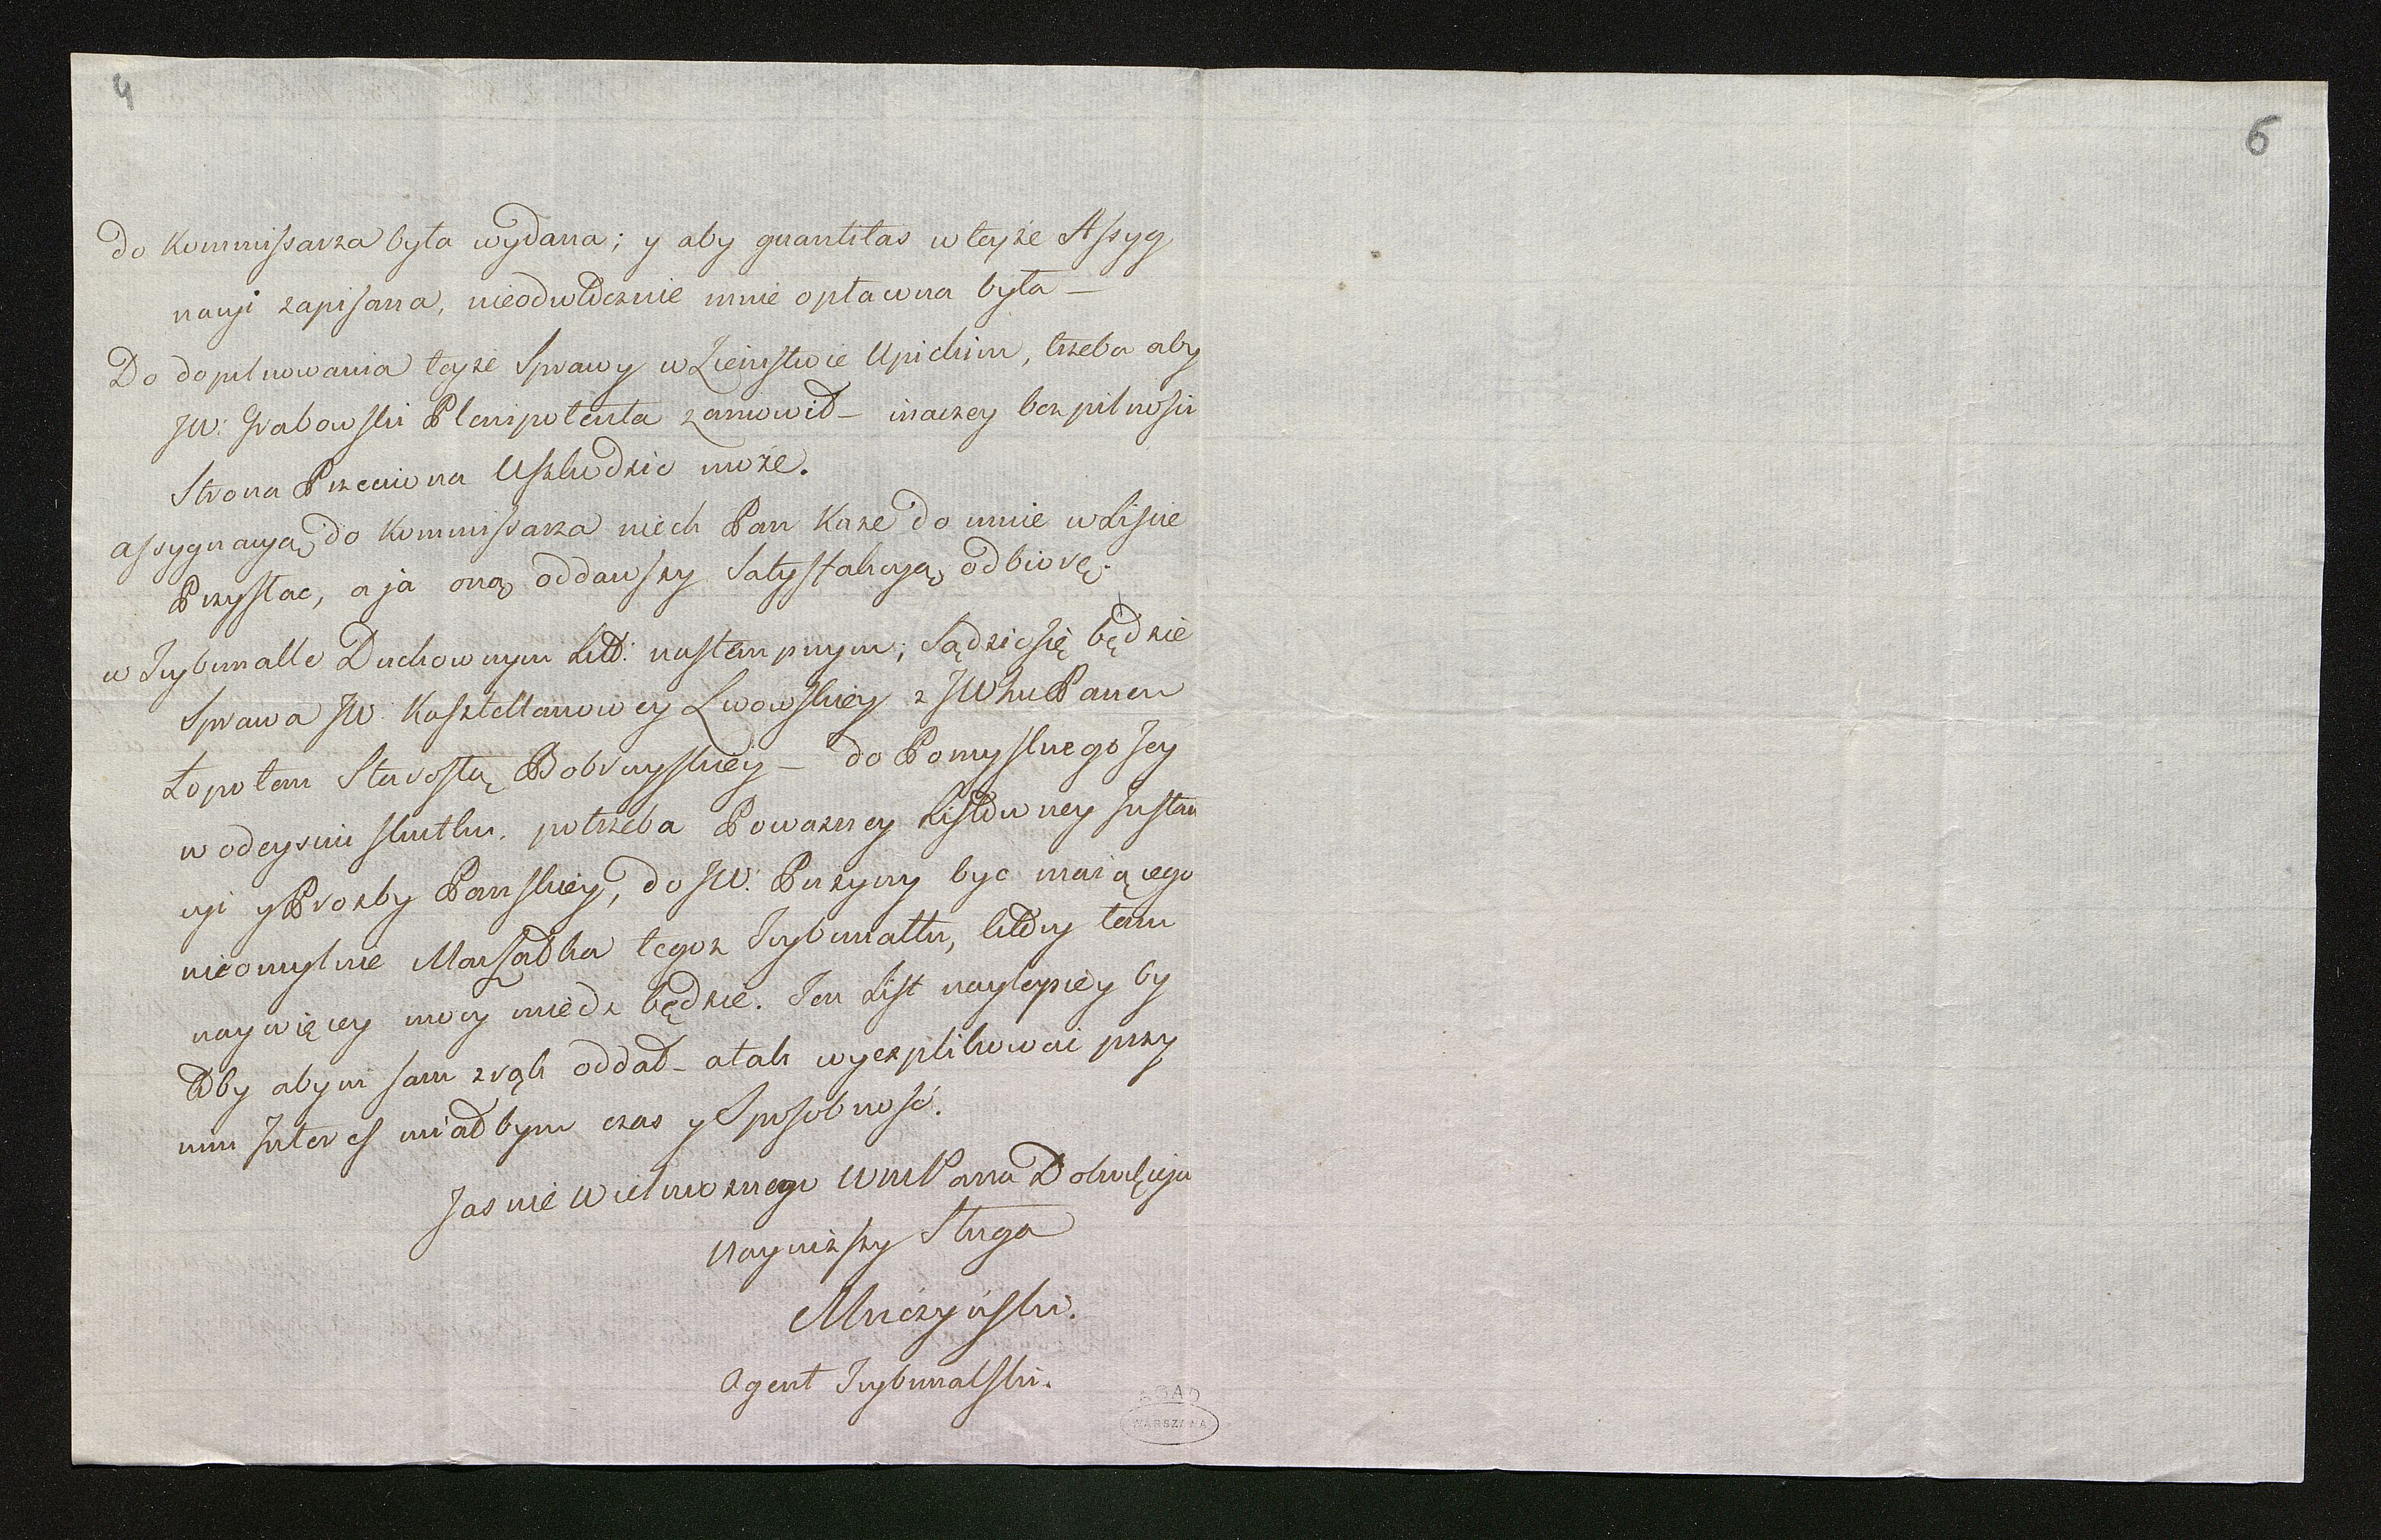 4
6
do Kommissarza była wydana; y aby quantitas w teyże Assyg
nacyi zapisana, nieodwłocznie mnie opłacona była —
Do dopilnowania teyże Sprawy w Ziemstwie Upickim, trzeba aby
JW: Grabowski Plenipotenta zamowił – inaczey bez pilnosci
Strona Przeciwna Uszkodzic może.
assygnacyą do Kommissarza niech Pan Każe do mnie w Liscie
Przysłac, a ja oną oddawszy Satysfakcyą odbiorę.
w Trybunalle Duchownym Litt: nastempnym; Sądzic się będzie
Sprawa JW: Kasztellanowey Lwowskiey z JW Panem
Łopotem Starostą Bobruyskiey – do Pomyslnego Jey
w odeysciu skutku. potrzeba Powazney Listowney Instan
cyi y Prozby Panskiey, do JW: Puzyny byc maiącego
nieomylnie Marszałka tegoz Trybunallu, ktory tam
naywięcey mocy miedz będzie. Ten List naylepiey by
było abym sam z rąk oddał – a tak wyexplikowac przy
nim Interes miałbym czas y Sposobność.
Jasnie Wielmoznego WmPana Dobrodzieja
Naynizszy Sługa
Mnczyński.
Agent Trybunalski.
AGAD
WARSZAWA